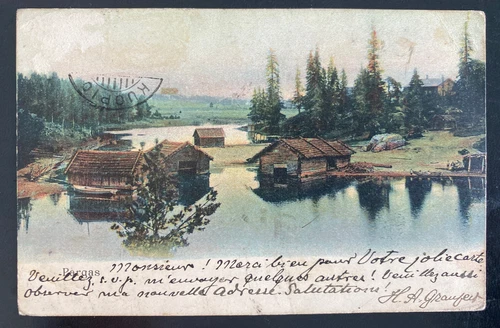 KUOPIO
Borgas
Monsieur! Merci bien pour Votre jolie carte
Veuillez, s.v.p. m'envoyer quelques autres! Veuillez aussi
observer ma nouvelle Adresse. Salutations! H. A. Granger